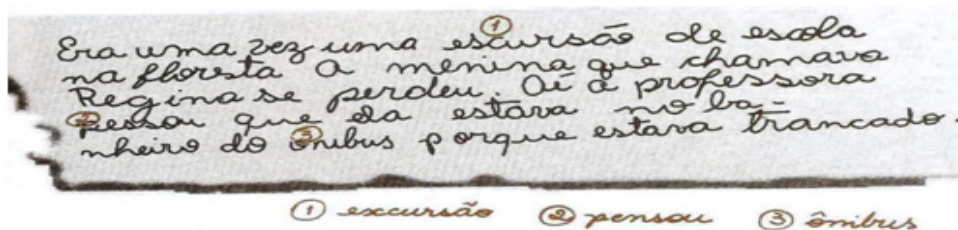 ①
Era uma vez uma escursão de escola
na floresta a menina que chamava
Regina se perdeu. Aí a professora
② pessou que ela estava no ba-
nheiro do ③ ônibus porque estava trancado.
① excursão ② pensou ③ ônibus